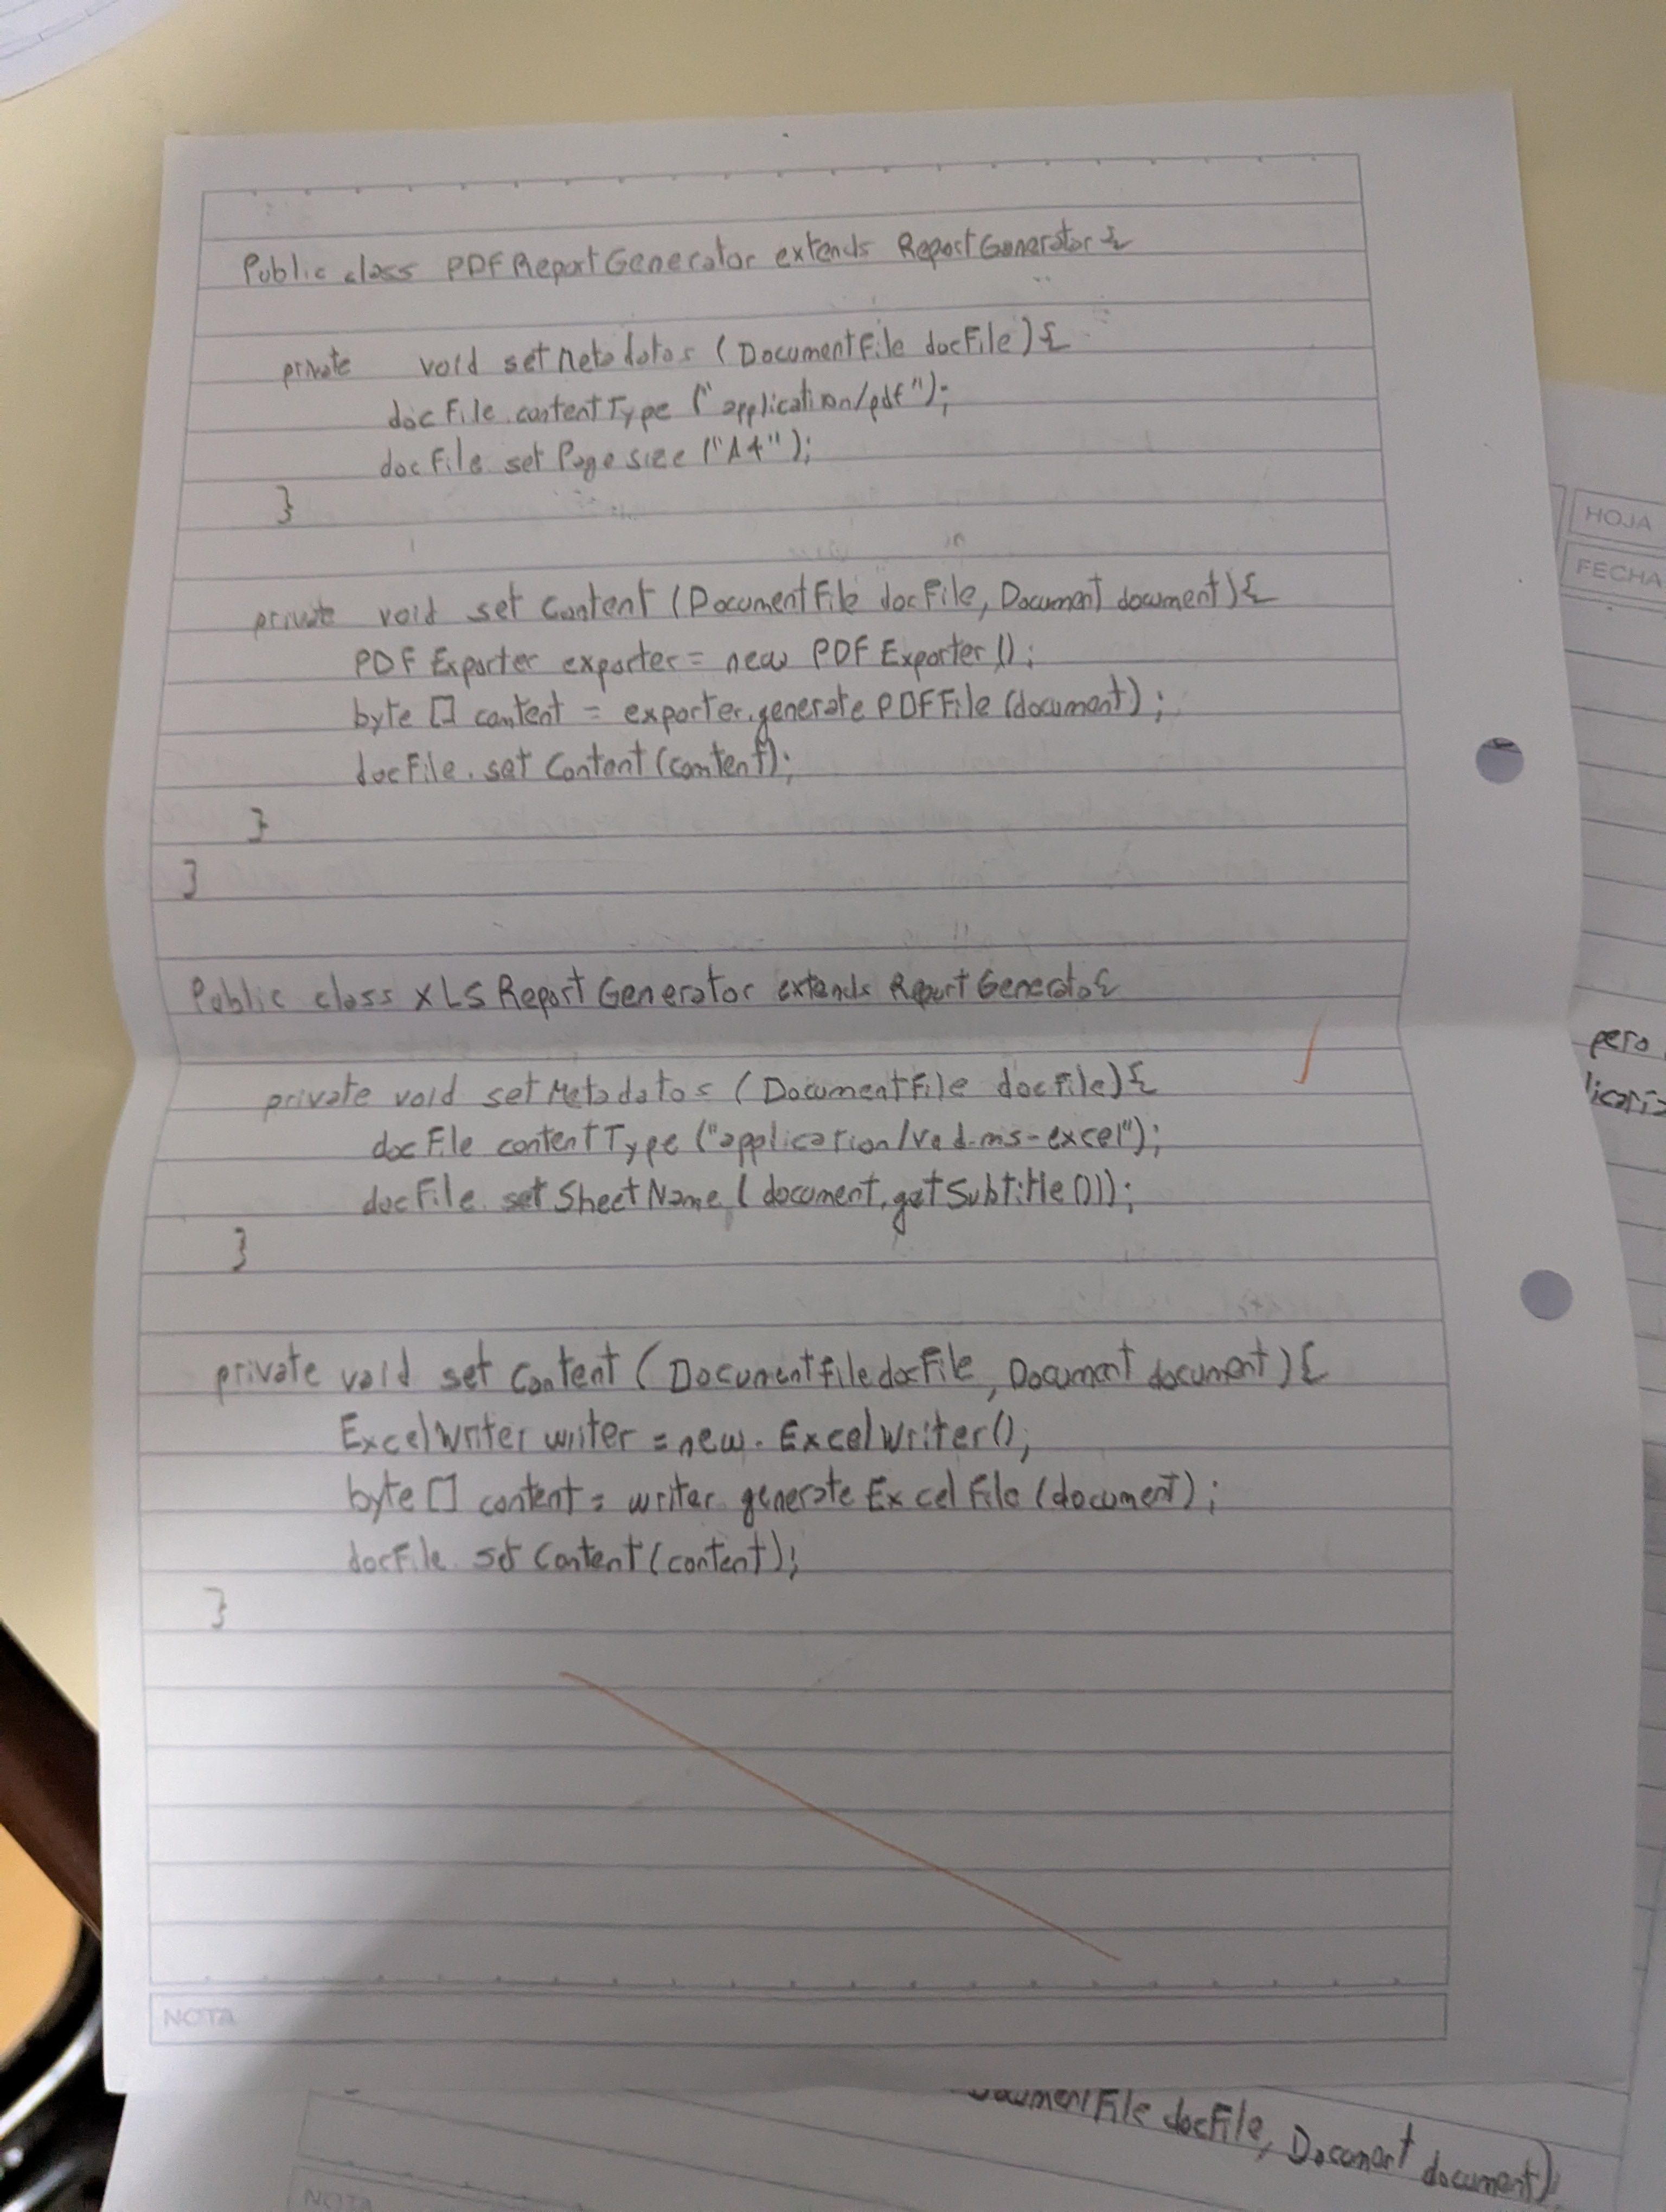 Public class PDFReportGenerator extends ReportGenerator {
private void setMetadatos (DocumentFile docFile) {
docFile.contentType ("application/pdf");
docFile.setPageSize ("A4");
}
private void setContent (DocumentFile docFile, Document document) {
PDFExporter exporter = new PDFExporter();
byte [] content = exporter.generatePDFFile (document);
docFile.setContent (content);
}
}
Public class XLSReportGenerator extends ReportGenerator {
private void setMetadatos (DocumentFile docFile) {
docFile contentType ("application/vnd.ms-excel");
docFile.setSheetName (document.getSubtitle()));
}
private void setContent (DocumentFile docFile, Document document) {
ExcelWriter writer = new ExcelWriter();
byte [] content = writer.generateExcelFile (document);
docFile.setContent (content);
}
NOTA
HOJA
FECHA
pero
DocumentFile docFile, Document document)
NOTA